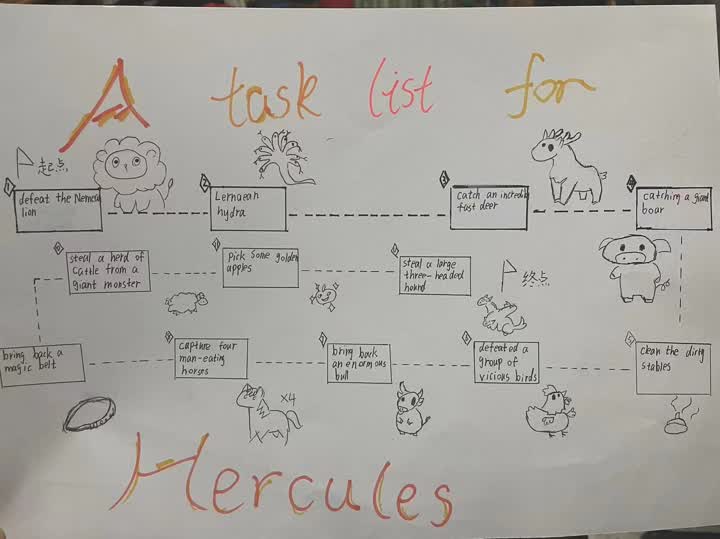 A task list for
起点
1
defeat the Nemean
lion
2
Lernaean
hydra
3
catch an incredibly
fast deer
4
catching a giant
boar
5
clean the dirty
stables
6
defeated a
group of
vicious birds
7
bring back
an enormous
bull
8
capture four
man-eating
horses
×4
9
bring back a
magic belt
10
steal a herd of
cattle from a
giant monster
11
Pick some golden
apples
12
steal a large
three-headed
hound
终点
Hercules